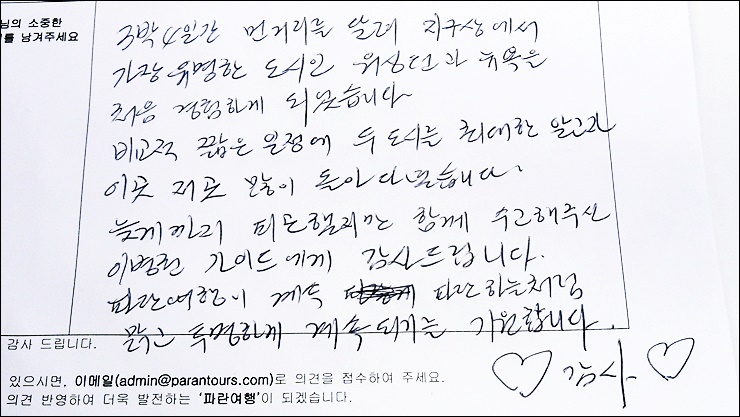 님의 소중한
를 남겨주세요
3박4일간 먼거리를 달려 지구상에서
가장 유명한 도시인 워싱턴과 뉴욕을
처음 경험하게 되었습니다
비교적 짧은 일정에 두 도시를 최대한 알고자
이곳 저곳 많이 돌아다녔습니다.
늦게까지 피곤했지만 함께 수고해주신
이병현 가이드에게 감사드립니다.
파란여행이 계속 파란하늘처럼
맑고 투명하게 계속되기를 기원합니다.
♡ 감사 ♡
감사 드립니다.
있으시면, 이메일(admin@parantours.com)로 의견을 접수하여 주세요.
의견 반영하여 더욱 발전하는 '파란여행'이 되겠습니다.